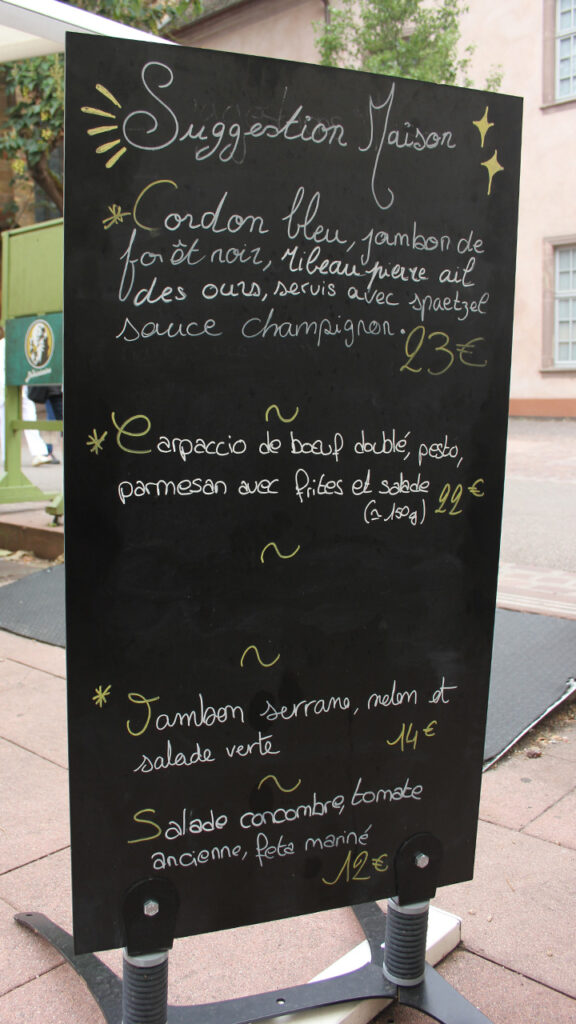 Suggestion Maison
* Cordon bleu, jambon de
forêt noir, ribeaupierre ail
des ours, servis avec spaetzel
sauce champignon. 23€
~
* Carpaccio de bœuf doublé, pesto,
parmesan avec frites et salade
(≃ 150g) 22€
~
~
* Jambon serrano, melon et
salade verte 14€
~
Salade concombre, tomate
ancienne, feta mariné
12€